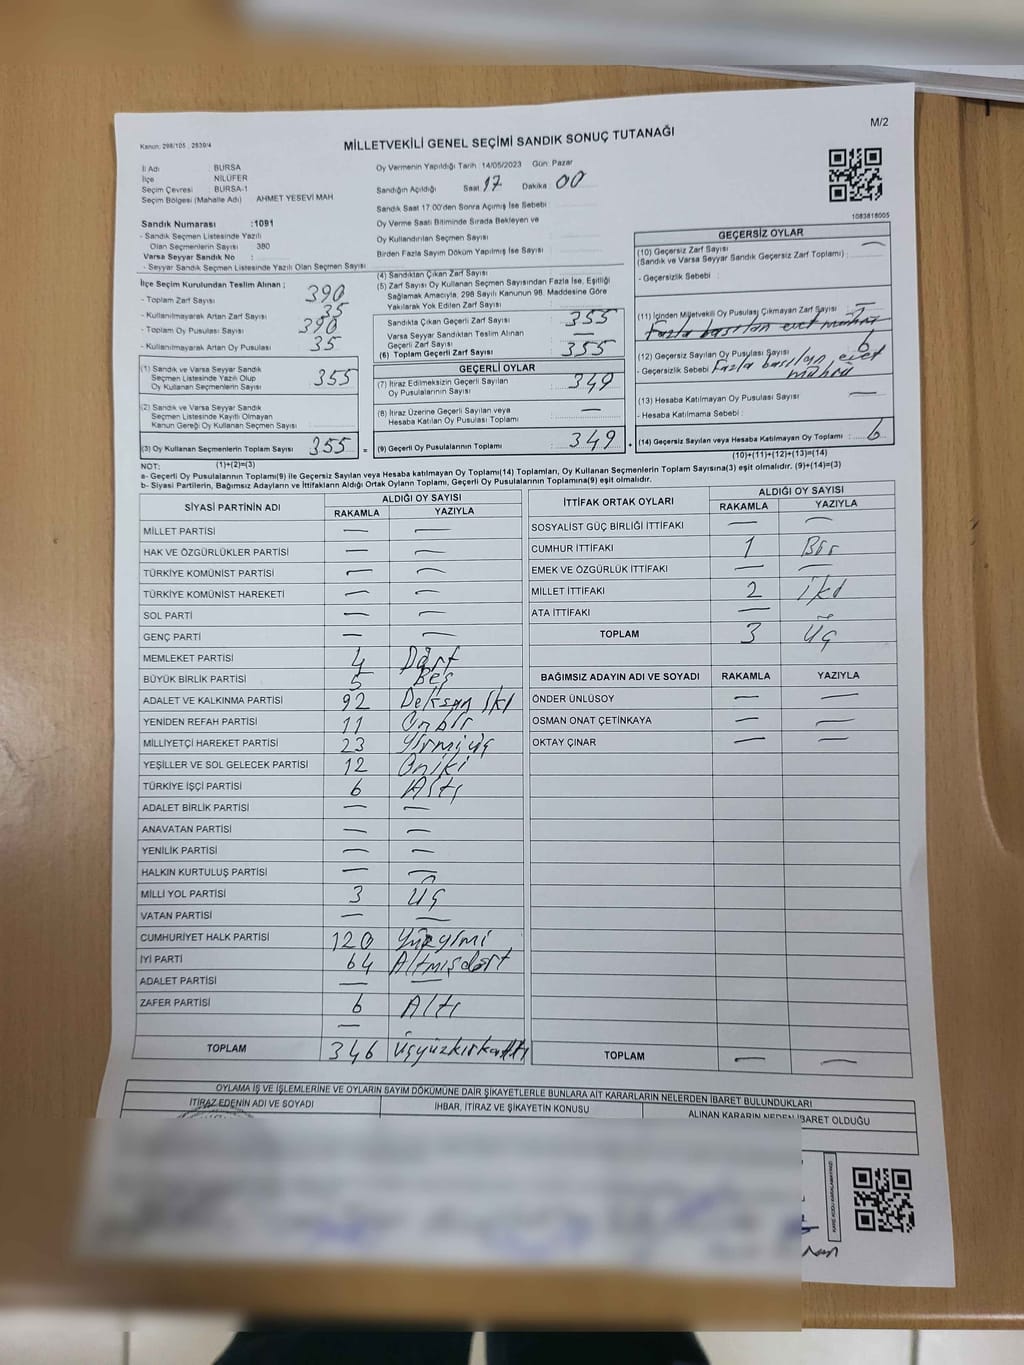 M/2
Kanun: 298/105 , 2839/4
MİLLETVEKİLİ GENEL SEÇİMİ SANDIK SONUÇ TUTANAĞI
İl Adı : BURSA
İlçe : NİLÜFER
Seçim Çevresi : BURSA-1
Seçim Bölgesi (Mahalle Adı) AHMET YESEVİ MAH
Sandık Numarası :1091
- Sandık Seçmen Listesinde Yazılı
Olan Seçmenlerin Sayısı 380
Varsa Seyyar Sandık No :
- Seyyar Sandık Seçmen Listesinde Yazılı Olan Seçmen Sayısı
Oy Vermenin Yapıldığı Tarih : 14/05/2023 Gün: Pazar
Sandığın Açıldığı Saat 17 Dakika : 00
Sandık Saat 17:00'den Sonra Açımış İse Sebebi :
Oy Verme Saati Bitiminde Sırada Bekleyen ve
Oy Kullandırılan Seçmen Sayısı :
Birden Fazla Sayım Döküm Yapılmış İse Sayısı :
1083818005
İlçe Seçim Kurulundan Teslim Alınan ;
- Toplam Zarf Sayısı 390
- Kullanılmayarak Artan Zarf Sayısı 35
- Toplam Oy Pusulası Sayısı 390
- Kullanılmayarak Artan Oy Pusulası 35
(1) Sandık ve Varsa Seyyar Sandık
Seçmen Listesinde Yazılı Olup
Oy Kullanan Seçmenlerin Sayısı 355
(2) Sandık ve Varsa Seyyar Sandık
Seçmen Listesinde Kayıtlı Olmayan
Kanun Gereği Oy Kullanan Seçmen Sayısı :
(3) Oy Kullanan Seçmenlerin Toplam Sayısı 355 =
(4) Sandıktan Çıkan Zarf Sayısı
(5) Zarf Sayısı Oy Kullanan Seçmen Sayısından Fazla İse, Eşitliği
Sağlamak Amacıyla, 298 Sayılı Kanunun 98. Maddesine Göre
Yakılarak Yok Edilen Zarf Sayısı :
Sandıkta Çıkan Geçerli Zarf Sayısı : 355
Varsa Seyyar Sandıktan Teslim Alınan
Geçerli Zarf Sayısı : —
(6) Toplam Geçerli Zarf Sayısı : 355
GEÇERLİ OYLAR
(7) İtiraz Edilmeksizin Geçerli Sayılan
Oy Pusulalarının Sayısı : 349
(8) İtiraz Üzerine Geçerli Sayılan veya
Hesaba Katılan Oy Pusulası Toplamı : —
(9) Geçerli Oy Pusulalarının Toplamı : 349 +
GEÇERSİZ OYLAR
(10) Geçersiz Zarf Sayısı —
(Sandık ve Varsa Seyyar Sandık Geçersiz Zarf Toplamı) :
- Geçersizlik Sebebi :
(11) İçinden Milletvekili Oy Pusulası Çıkmayan Zarf Sayısı : —
Fazla basılan evet mührü
(12) Geçersiz Sayılan Oy Pusulası Sayısı : 6
- Geçersizlik Sebebi Fazla basılan evet
mührü
(13) Hesaba Katılmayan Oy Pusulası Sayısı —
- Hesaba Katılmama Sebebi :
(14) Geçersiz Sayılan veya Hesaba Katılmayan Oy Toplamı : 6
NOT: (1)+(2)=(3) (10)+(11)+(12)+(13)=(14)
a- Geçerli Oy Pusulalarının Toplamı(9) ile Geçersiz Sayılan veya Hesaba katılmayan Oy Toplamı(14) Toplamları, Oy Kullanan Seçmenlerin Toplam Sayısına(3) eşit olmalıdır. (9)+(14)=(3)
b- Siyasi Partilerin, Bağımsız Adayların ve İttifakların Aldığı Ortak Oyların Toplamı, Geçerli Oy Pusulalarının Toplamına(9) eşit olmalıdır.
SİYASİ PARTİNİN ADI ALDIĞI OY SAYISI
RAKAMLA YAZIYLA
MİLLET PARTİSİ — —
HAK VE ÖZGÜRLÜKLER PARTİSİ — —
TÜRKİYE KOMÜNİST PARTİSİ — —
TÜRKİYE KOMÜNİST HAREKETİ — —
SOL PARTİ — —
GENÇ PARTİ — —
MEMLEKET PARTİSİ 4 Dört
BÜYÜK BİRLİK PARTİSİ 5 Beş
ADALET VE KALKINMA PARTİSİ 92 Doksan iki
YENİDEN REFAH PARTİSİ 11 Onbir
MİLLİYETÇİ HAREKET PARTİSİ 23 Yirmiüç
YEŞİLLER VE SOL GELECEK PARTİSİ 12 Oniki
TÜRKİYE İŞÇİ PARTİSİ 6 Altı
ADALET BİRLİK PARTİSİ — —
ANAVATAN PARTİSİ — —
YENİLİK PARTİSİ — —
HALKIN KURTULUŞ PARTİSİ — —
MİLLİ YOL PARTİSİ 3 Üç
VATAN PARTİSİ — —
CUMHURİYET HALK PARTİSİ 120 Yüzyirmi
İYİ PARTİ 64 Altmışdört
ADALET PARTİSİ — —
ZAFER PARTİSİ 6 Altı
—
TOPLAM 346 Üçyüzkırkaltı
İTTİFAK ORTAK OYLARI ALDIĞI OY SAYISI
RAKAMLA YAZIYLA
SOSYALİST GÜÇ BİRLİĞİ İTTİFAKI — —
CUMHUR İTTİFAKI 1 Bir
EMEK VE ÖZGÜRLÜK İTTİFAKI — —
MİLLET İTTİFAKI 2 iki
ATA İTTİFAKI — —
TOPLAM 3 Üç
BAĞIMSIZ ADAYIN ADI VE SOYADI RAKAMLA YAZIYLA
ÖNDER ÜNLÜSOY — —
OSMAN ONAT ÇETİNKAYA — —
OKTAY ÇINAR — —
TOPLAM — —
OYLAMA İŞ VE İŞLEMLERİNE VE OYLARIN SAYIM DÖKÜMÜNE DAİR ŞİKAYETLERLE BUNLARA AİT KARARLARIN NELERDEN İBARET BULUNDUKLARI
İTİRAZ EDENİN ADI VE SOYADI İHBAR, İTİRAZ VE ŞİKAYETİN KONUSU ALINAN KARARIN NEDEN İBARET OLDUĞU